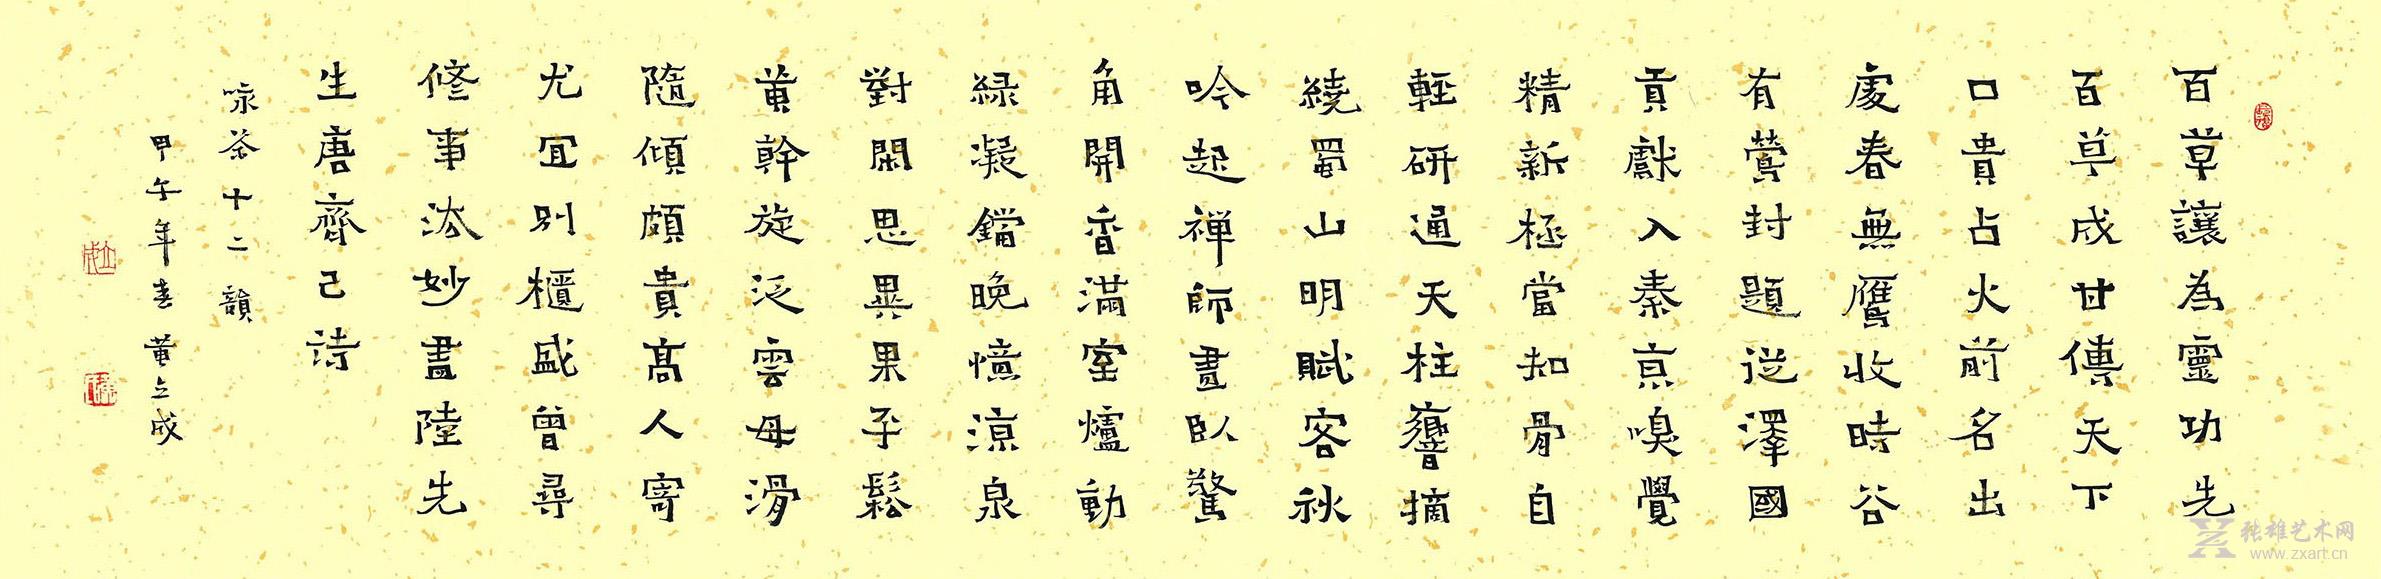 百草讓為靈功先
百草成甘傳天下
口貴占火前名出
處春無鷹收時谷
有鶯封題從澤國
貢獻入秦京嗅覺
精新極當知骨自
輕研通天柱響摘
繞蜀山明賦客秋
吟起禪師晝臥驚
角開香滿室爐動
綠凝鐺晚憶涼泉
對閑思異果平鬆
黃幹旋泛雲母滑
隨傾頗貴高人寄
尤宜別櫃盛曾尋
修事法妙盡陸先
生唐齊己詩
咏茶十二韻
甲午年春黃立成
张雄艺术网
www.zxart.cn